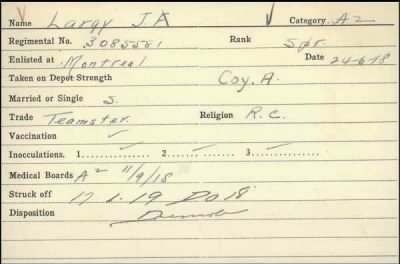 Name Largy J.A Category. A2
Regimental No. 3085581 Rank Spr.
Enlisted at Montreal Date 24-6-18
Taken on Depot Strength Coy. A.
Married or Single S.
Trade Teamster. Religion R.C.
Vaccination ✓
Inoculations. 1 ✓ 2 ✓ 3 ✓
Medical Boards A2 11/9/18
Struck off 17.1.19 DO18
Disposition Demob